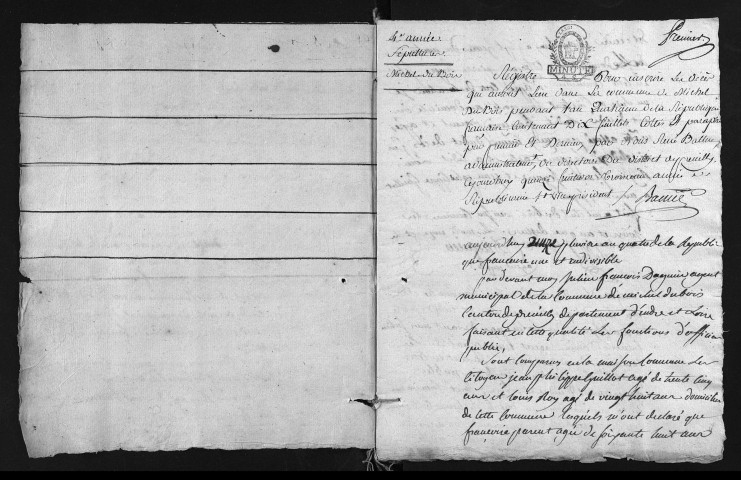 4e année
Sépultures
Michel du Bois
Premier.
MINUTE
Registre Pour inscrire les Décès
qui auront lieu dans la commune de Michel
Du Bois pendant l'an Quatrieme de la République
française contenant Dix feuillets cottés et paraphé
par premier et Dernier par Nous
administrateur du directoire du district de preuilly
Cejourdhuy quinze année 3e
Républicaine
aujourdhuy pluviose an quatre de la Republi
que francoise une et indivisible
pardevant moy julien francois agent
municipal de la Commune de michel du bois
Canton de preuilly departement d'indre et Loire
faisant en cette qualité Les fonctions d'officier
public,
Sont Comparus en la maison Commune Les
citoyen jean philippe Guillot agé de trente cinq
ans et louis Roy agé de vingt huit ans domiciliés
de cette Commune lesquels m'ont declaré que
francoise parent agée de soixante huit ans